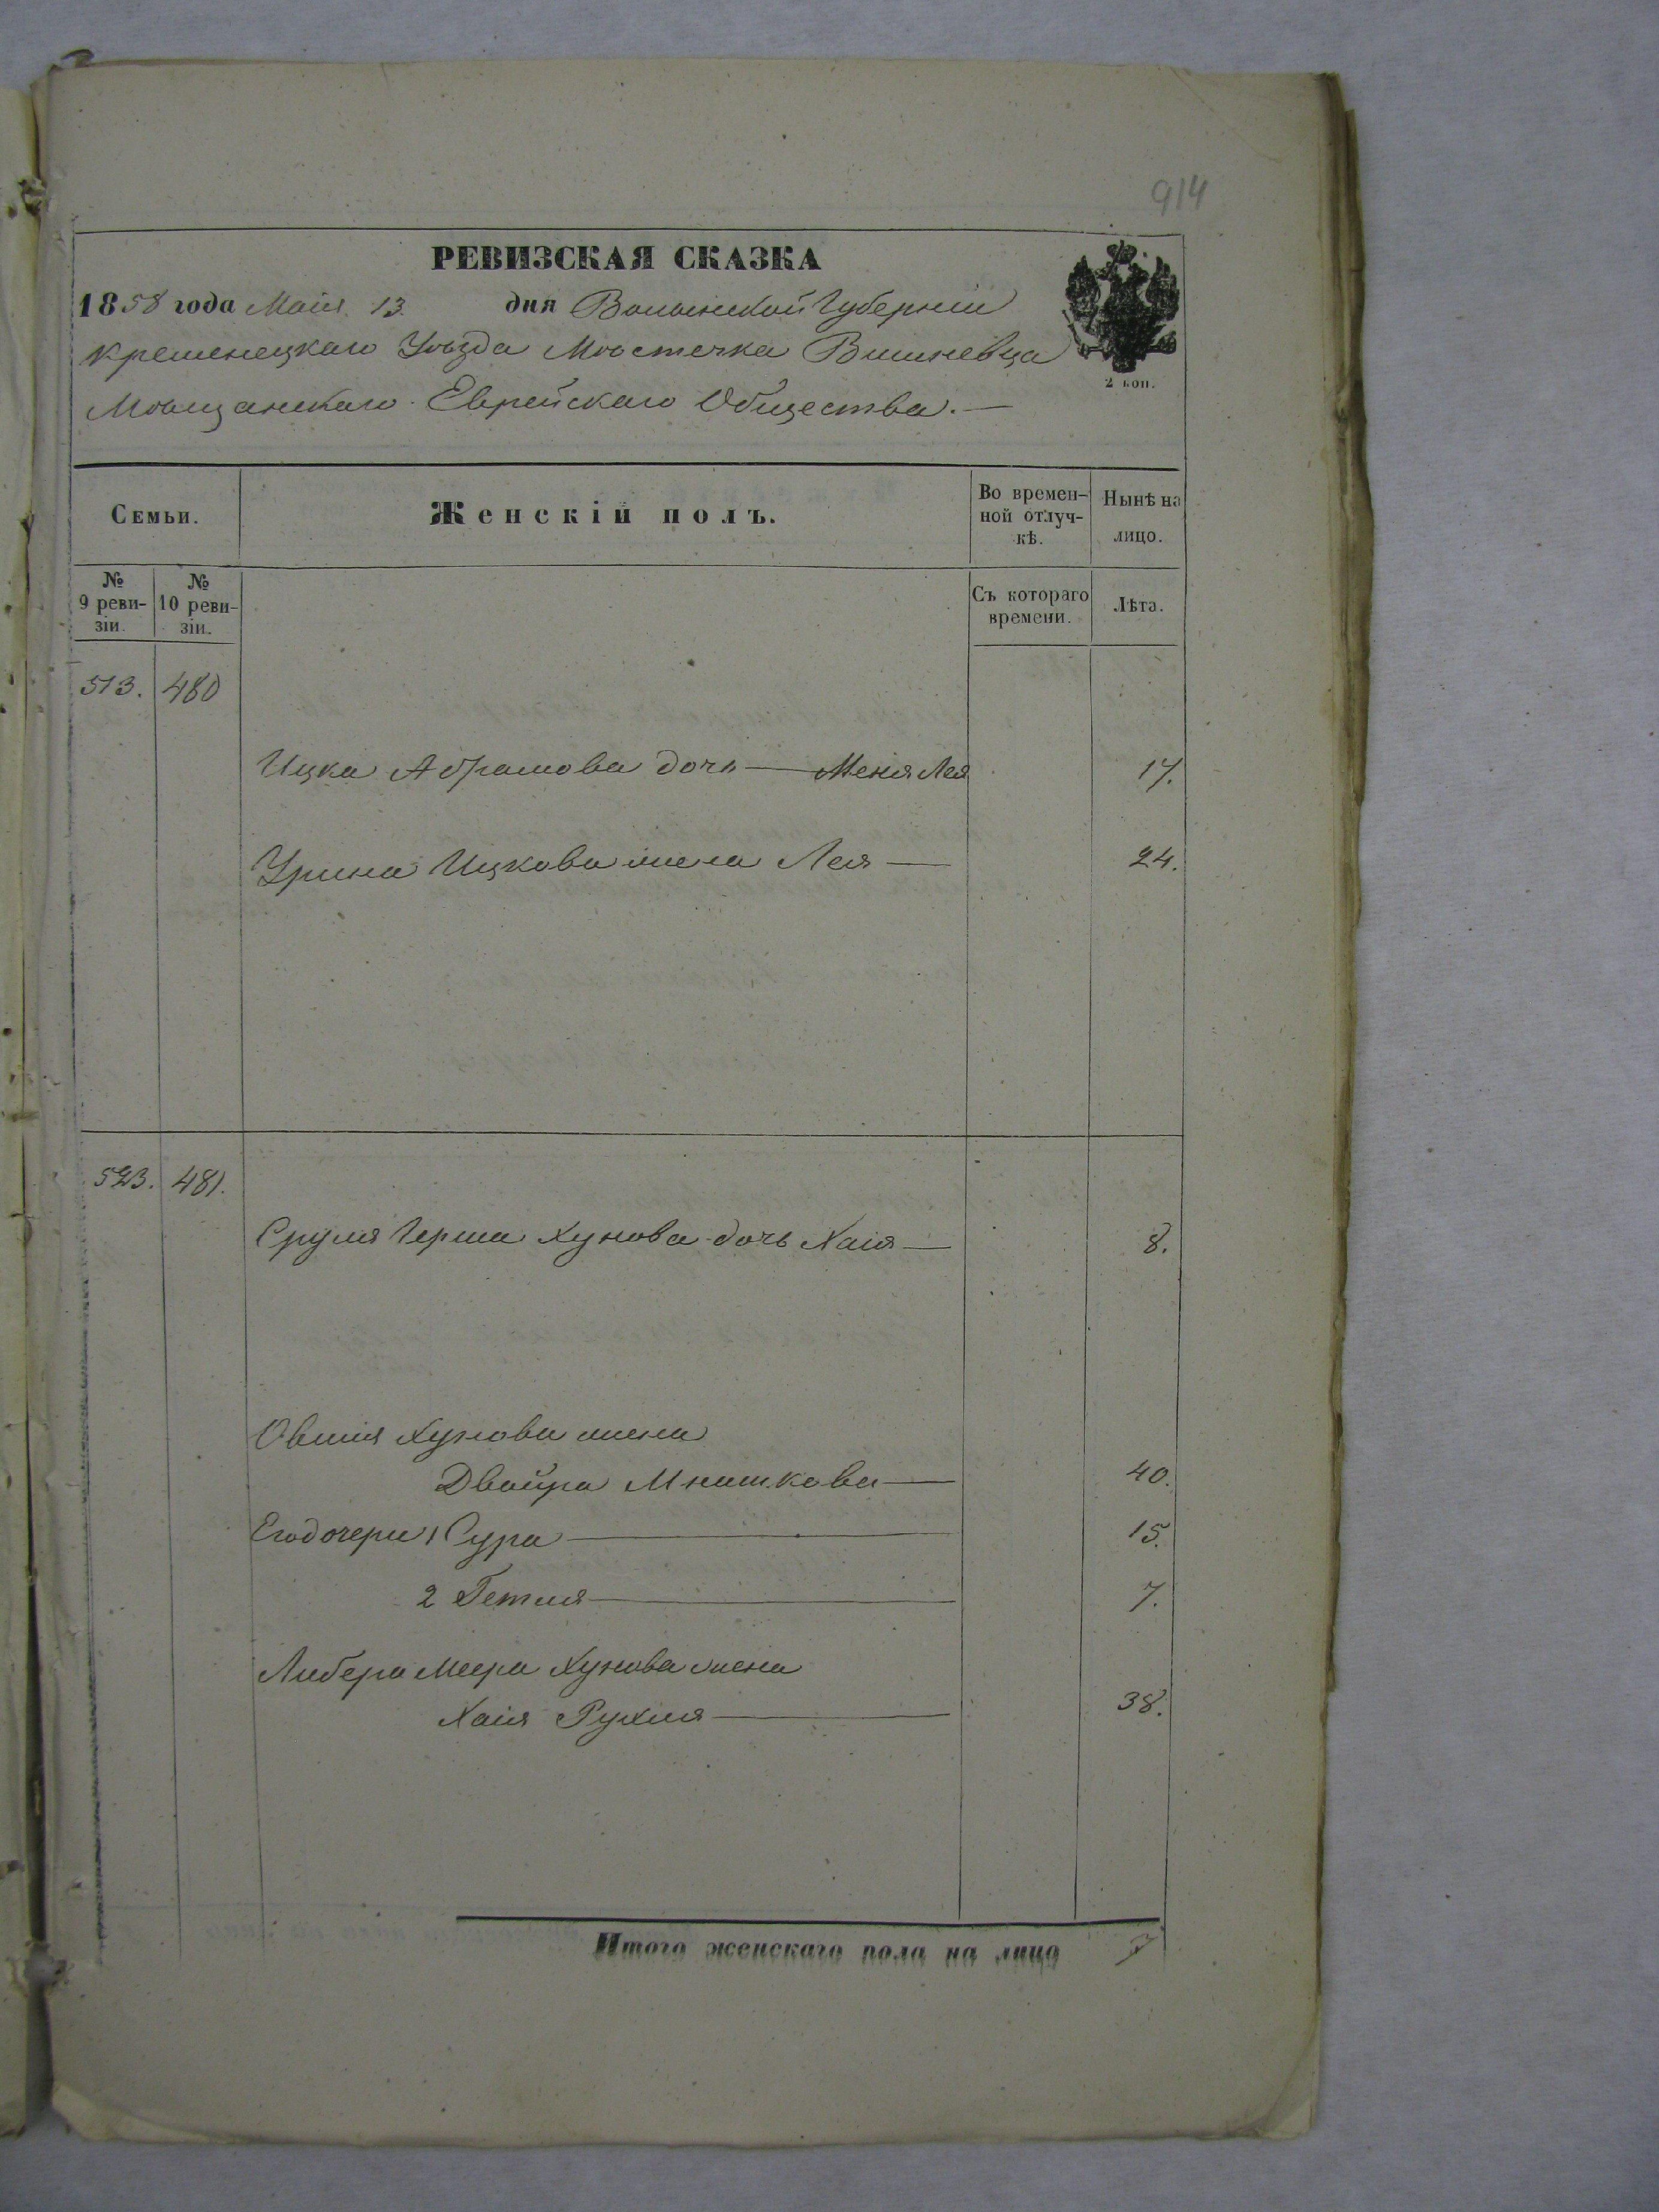 914
РЕВИЗСКАЯ СКАЗКА
1858 года Маія 13. дня Волынской Губерніи
Кременецкаго Уѣзда Мѣстечка Вишневца
Мѣщанскаго Еврейскаго Общества. —
2 коп.
Семьи.
Женскій полъ.
Во времен-
ной отлуч-
кѣ.
Нынѣ на
лицо.
№
9 реви-
зіи.
№
10 реви-
зіи.
Съ котораго
времени.
Лѣта.
513. 480
Ицка Абрамова дочь — Меня Лея 17.
Урина Ицкова жена Лея — 24.
523. 481.
Сруля Герша Хунова дочь Хаія — 8.
Овшія Хунова жена
Двойра Мошкова — 40.
Его дочери 1 Сура — 15.
2 Гетля — 7.
Либера Меера Хунова жена
Хаія Рухля — 38.
Итого женскаго пола на лицо 7